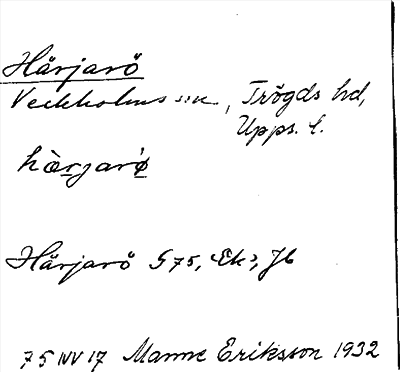 Härjarö
Veckholms sn, Trögds hd,
Upps. l.
hà̀rjarø̀
Härjarö G75, Ek3, Jb
75 NV 17 Manne Eriksson 1932